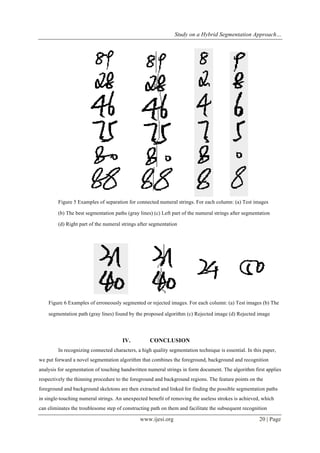 Study on a Hybrid Segmentation Approach…
89 89 8 9
28 28 2 8
46 46 4 6
75 75 7 5
80 80 8 0
88 88 8 8
Figure 5 Examples of separation for connected numeral strings. For each column: (a) Test images
(b) The best segmentation paths (gray lines) (c) Left part of the numeral strings after segmentation
(d) Right part of the numeral strings after segmentation
31 31
40 40 24
Figure 6 Examples of erroneously segmented or rejected images. For each column: (a) Test images (b) The
segmentation path (gray lines) found by the proposed algorithm (c) Rejected image (d) Rejected image
IV. CONCLUSION
In recognizing connected characters, a high quality segmentation technique is essential. In this paper,
we put forward a novel segmentation algorithm that combines the foreground, background and recognition
analysis for segmentation of touching handwritten numeral strings in form document. The algorithm first applies
respectively the thinning procedure to the foreground and background regions. The feature points on the
foreground and background skeletons are then extracted and linked for finding the possible segmentation paths
in single-touching numeral strings. An unexpected benefit of removing the useless strokes is achieved, which
can eliminates the troublesome step of constructing path on them and facilitate the subsequent recognition
www.ijesi.org 20 | Page